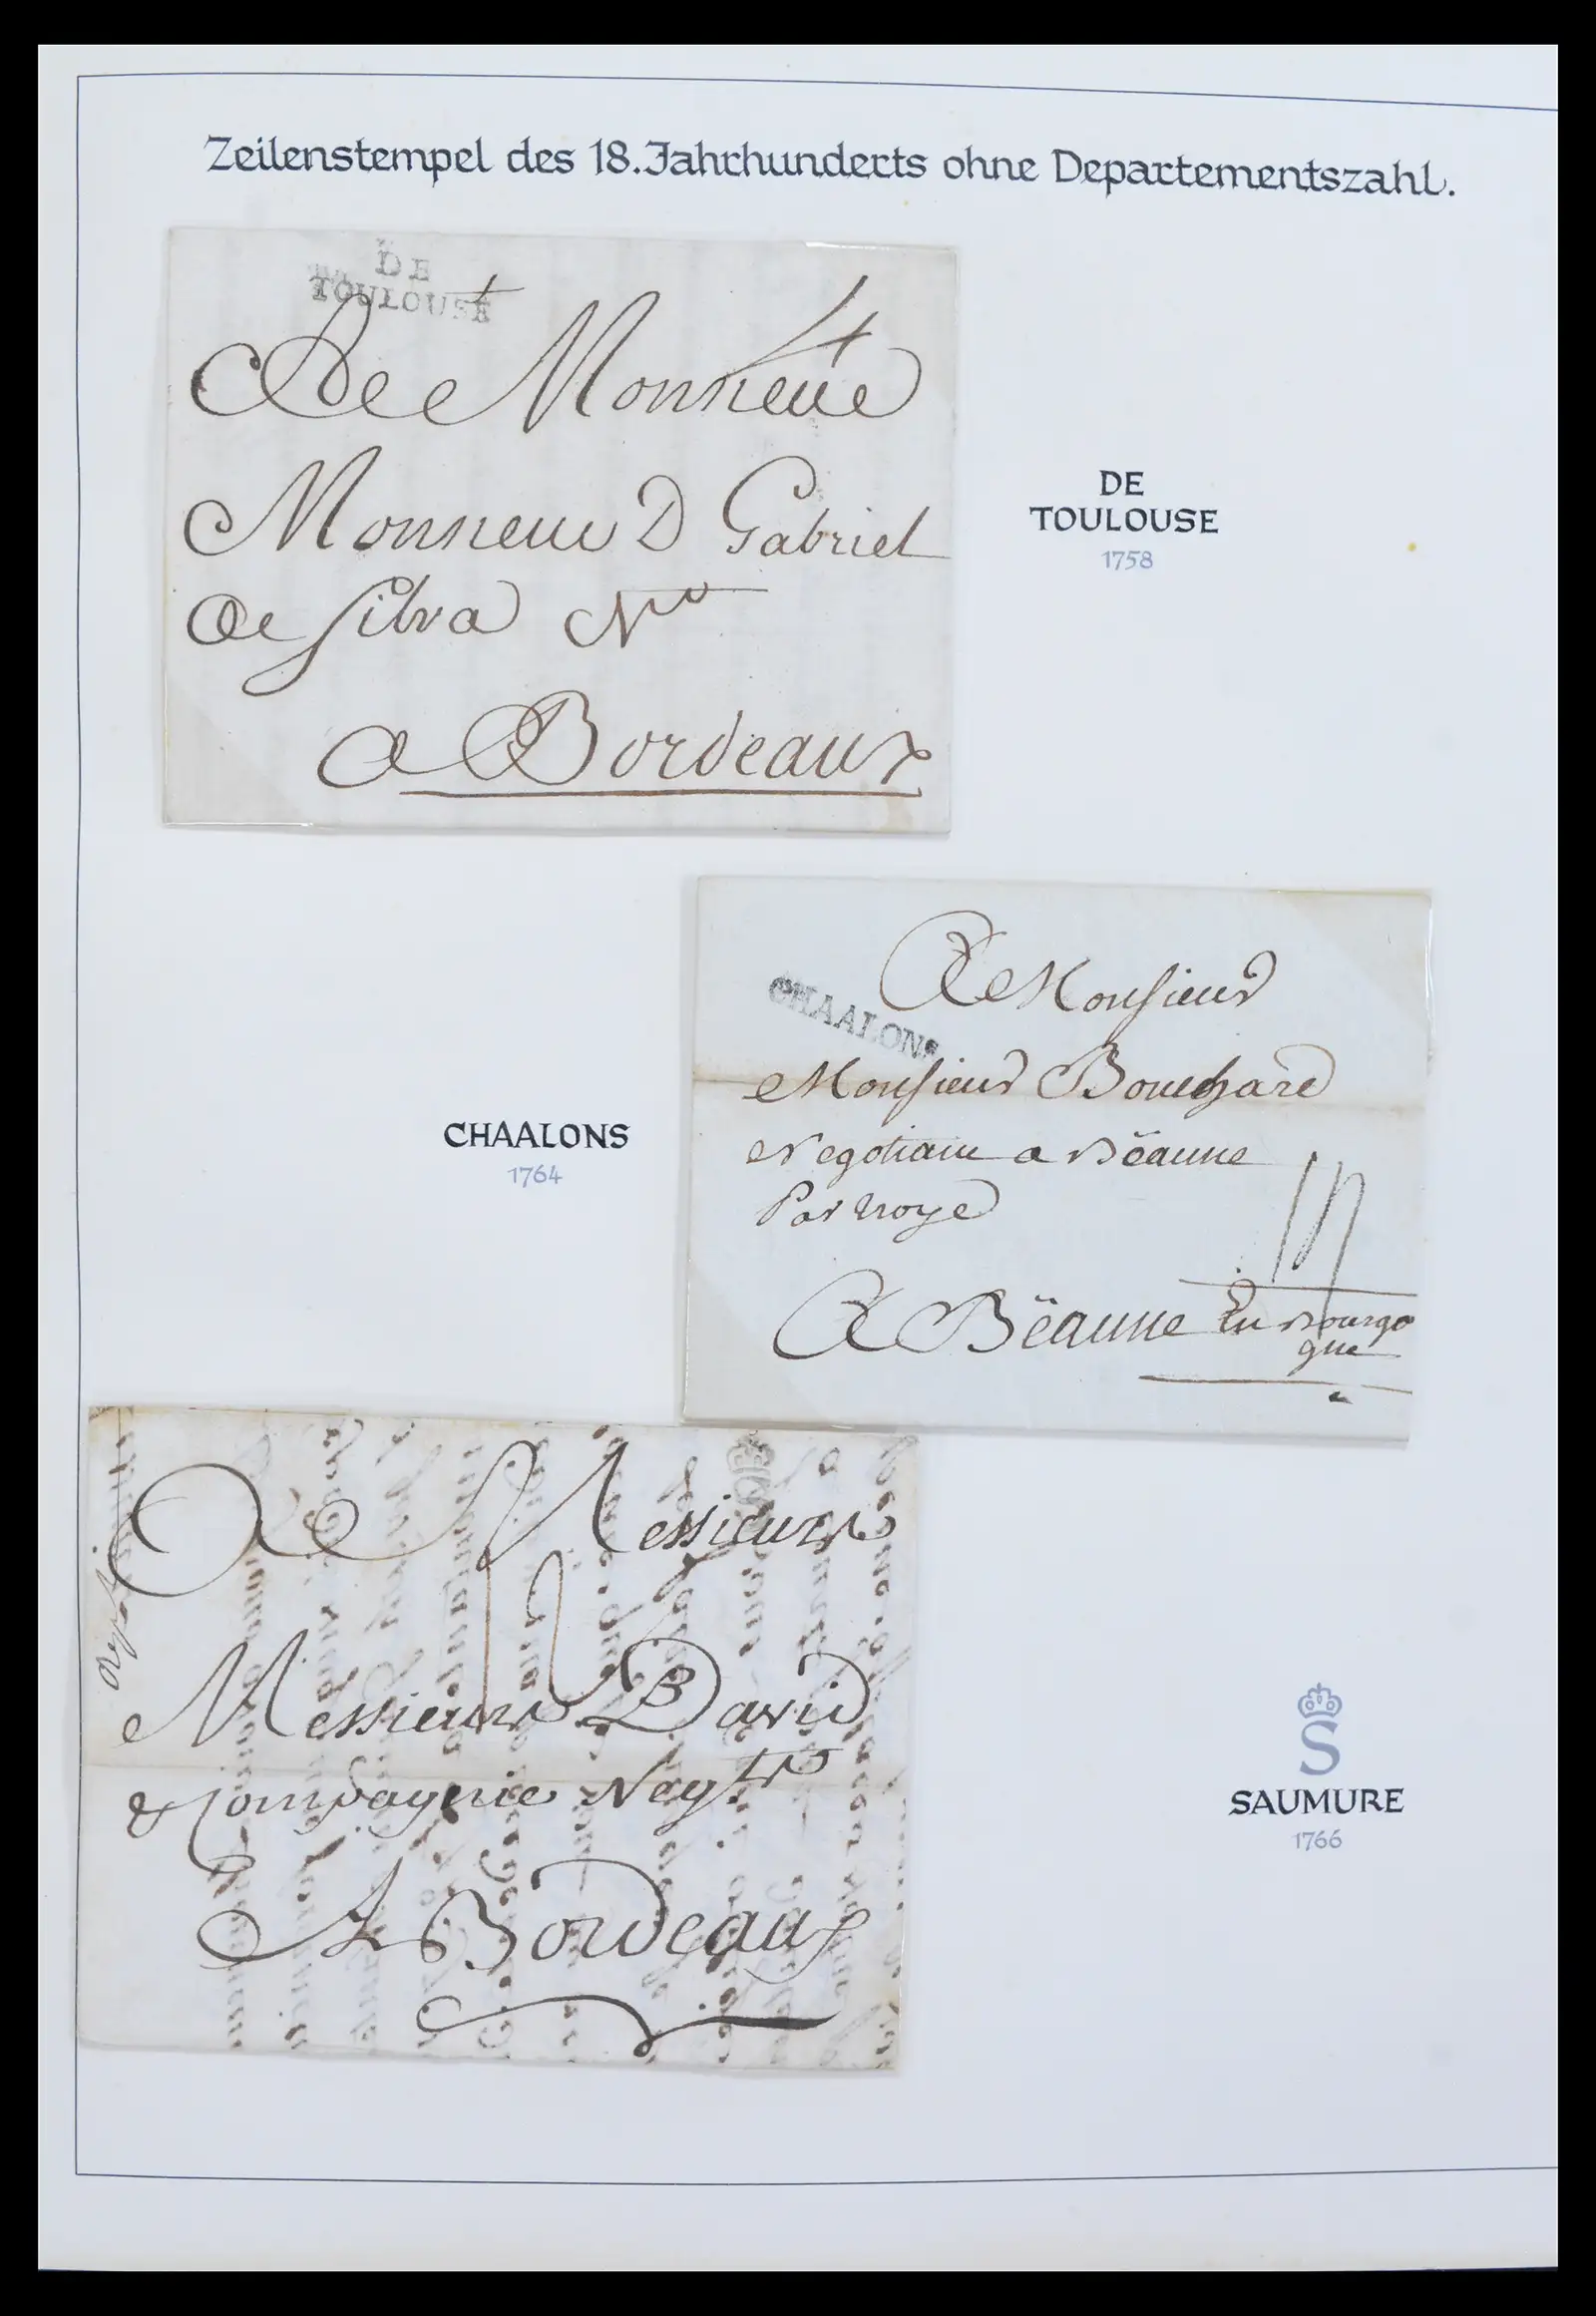 Zeilenstempel des 18. Jahrhunderts ohne Departementszahl.
DE
TOULOUSE
4
A Monsieur
Monsieur D Gabriel
De Silva
a Bordeaux
DE
TOULOUSE
1758
CHAALONS
A Monsieur
Monsieur Bouchard
Negotiant a Bëaune
Par troye
A Bëaune En Bourgo
gne
CHAALONS
1764
A Messieurs
Messieurs David
& Compagnie Negts
A Bordeaux
S
SAUMURE
1766